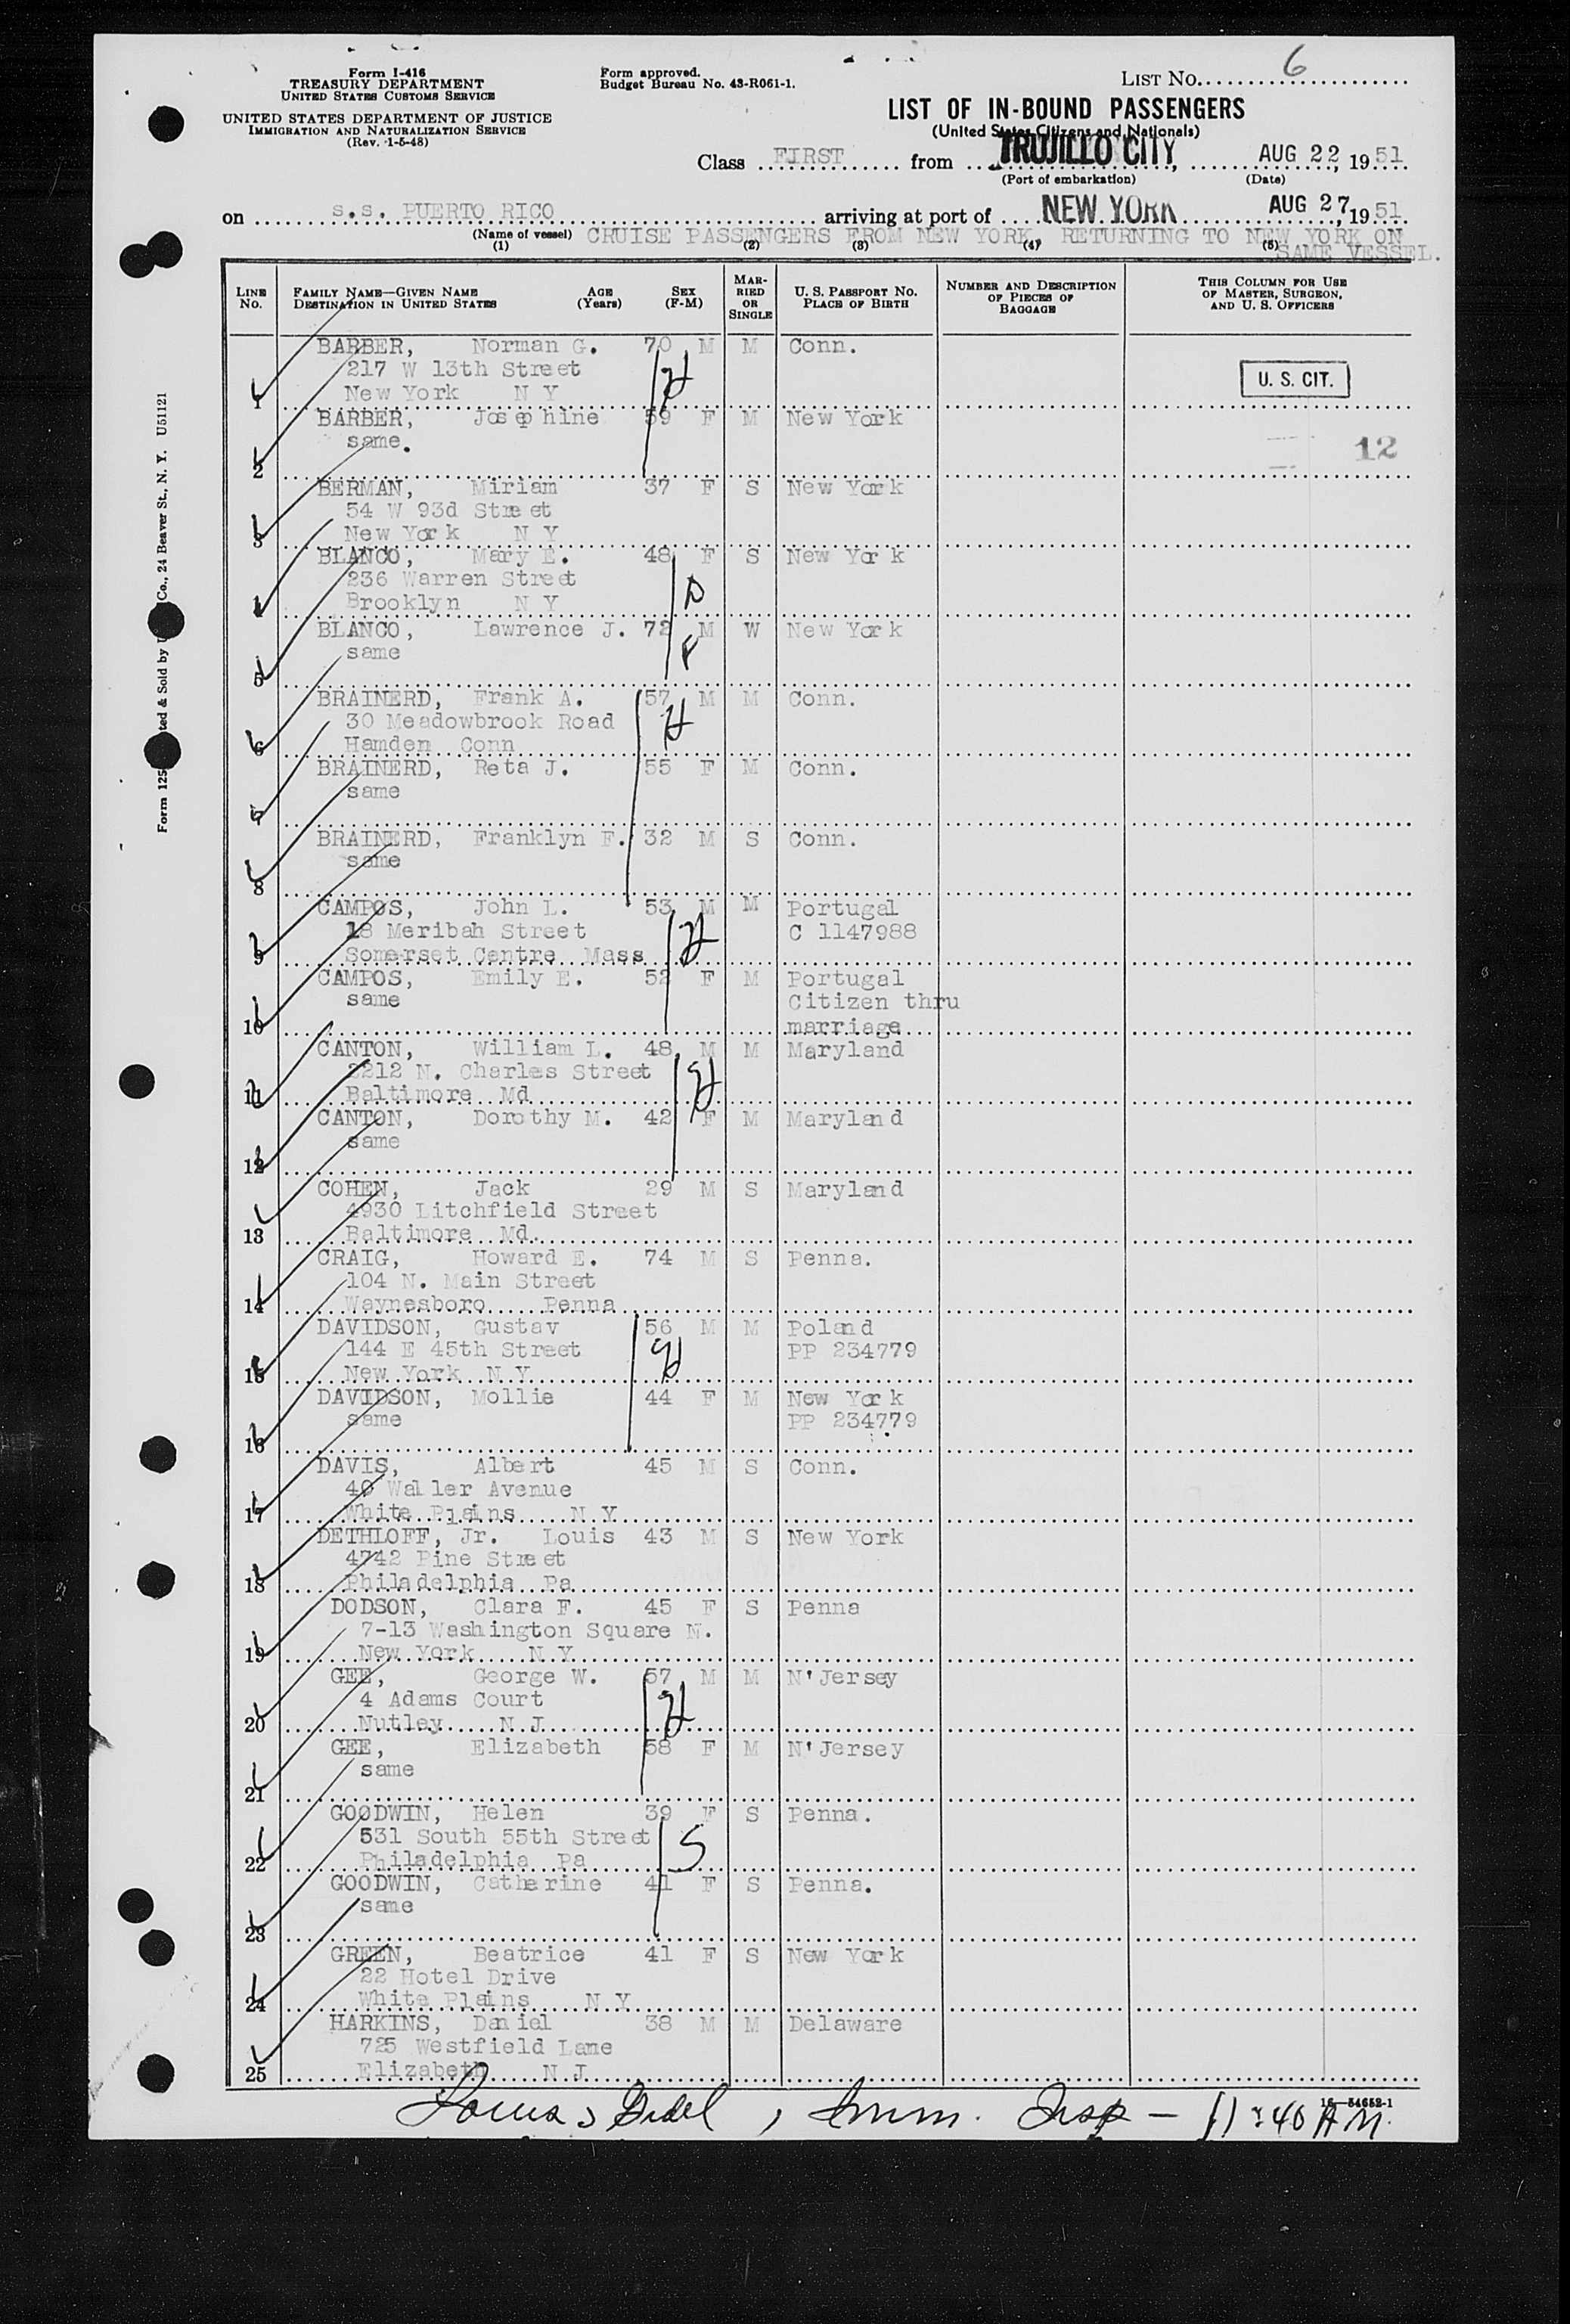 Form I-416
TREASURY DEPARTMENT
UNITED STATES CUSTOMS SERVICE
UNITED STATES DEPARTMENT OF JUSTICE
IMMIGRATION AND NATURALIZATION SERVICE
(Rev. 1-5-48)
Form approved.
Budget Bureau No. 43-R061-1.
LIST No. 6
LIST OF IN-BOUND PASSENGERS
(United States Citizens and Nationals)
Class FIRST from TRUJILLO CITY, AUG 22, 1951
(Port of embarkation) (Date)
on s.s. PUERTO RICO arriving at port of NEW YORK AUG 27, 1951
(Name of vessel) CRUISE PASSENGERS FROM NEW YORK, RETURNING TO NEW YORK ON
SAME VESSEL.
(1) (2) (3) (4) (5)
LINE No. FAMILY NAME—GIVEN NAME DESTINATION IN UNITED STATES AGE (Years) SEX (F-M) MARRIED OR SINGLE U. S. PASSPORT No. PLACE OF BIRTH NUMBER AND DESCRIPTION OF PIECES OF BAGGAGE THIS COLUMN FOR USE OF MASTER, SURGEON, AND U. S. OFFICERS
BARBER, Norman G. 70 M M Conn.
217 W 13th Street
U. S. CIT.
1 New York N Y
BARBER, Josephine 59 F M New York
same.
12
2
BERMAN, Miriam 37 F S New York
54 W 93d Street
3 New York N Y
BLANCO, Mary E. 48 F S New York
236 Warren Street
4 Brooklyn N Y
D
BLANCO, Lawrence J. 72 M W New York
same
F
5
BRAINERD, Frank A. 57 M M Conn.
30 Meadowbrook Road
6 Hamden Conn
BRAINERD, Reta J. 55 F M Conn.
same
7
BRAINERD, Franklyn F. 32 M S Conn.
same
8
CAMPOS, John L. 53 M M Portugal
18 Meribah Street C 1147988
9 Somerset Centre Mass
CAMPOS, Emily E. 52 F M Portugal
same Citizen thru
10 marriage
CANTON, William L. 48 M M Maryland
2212 N. Charles Street
11 Baltimore Md
CANTON, Dorothy M. 42 F M Maryland
same
12
COHEN, Jack 29 M S Maryland
4930 Litchfield Street
13 Baltimore Md.
CRAIG, Howard E. 74 M S Penna.
104 N. Main Street
14 Waynesboro Penna
DAVIDSON, Gustav 56 M M Poland
144 E 45th Street PP 234779
15 New York N Y
DAVIDSON, Mollie 44 F M New York
same PP 234779
16
DAVIS, Albert 45 M S Conn.
40 Waller Avenue
17 White Plains N Y
DETHLOFF, Jr. Louis 43 M S New York
4742 Pine Street
18 Philadelphia Pa
DODSON, Clara F. 45 F S Penna
7-13 Washington Square N.
19 New York N Y
GEE, George W. 57 M M N'Jersey
4 Adams Court
20 Nutley N J
GEE, Elizabeth 58 F M N'Jersey
same
21
GOODWIN, Helen 39 F S Penna.
531 South 55th Street
S
22 Philadelphia Pa
GOODWIN, Catherine 41 F S Penna.
same
23
GREEN, Beatrice 41 F S New York
22 Hotel Drive
24 White Plains N Y
HARKINS, Daniel 38 M M Delaware
725 Westfield Lane
25 Elizabeth N J
Imm. Insp — 11:40 AM.
16—54652-1
Form 125 ted & Sold by Co., 24 Beaver St., N. Y. U51121